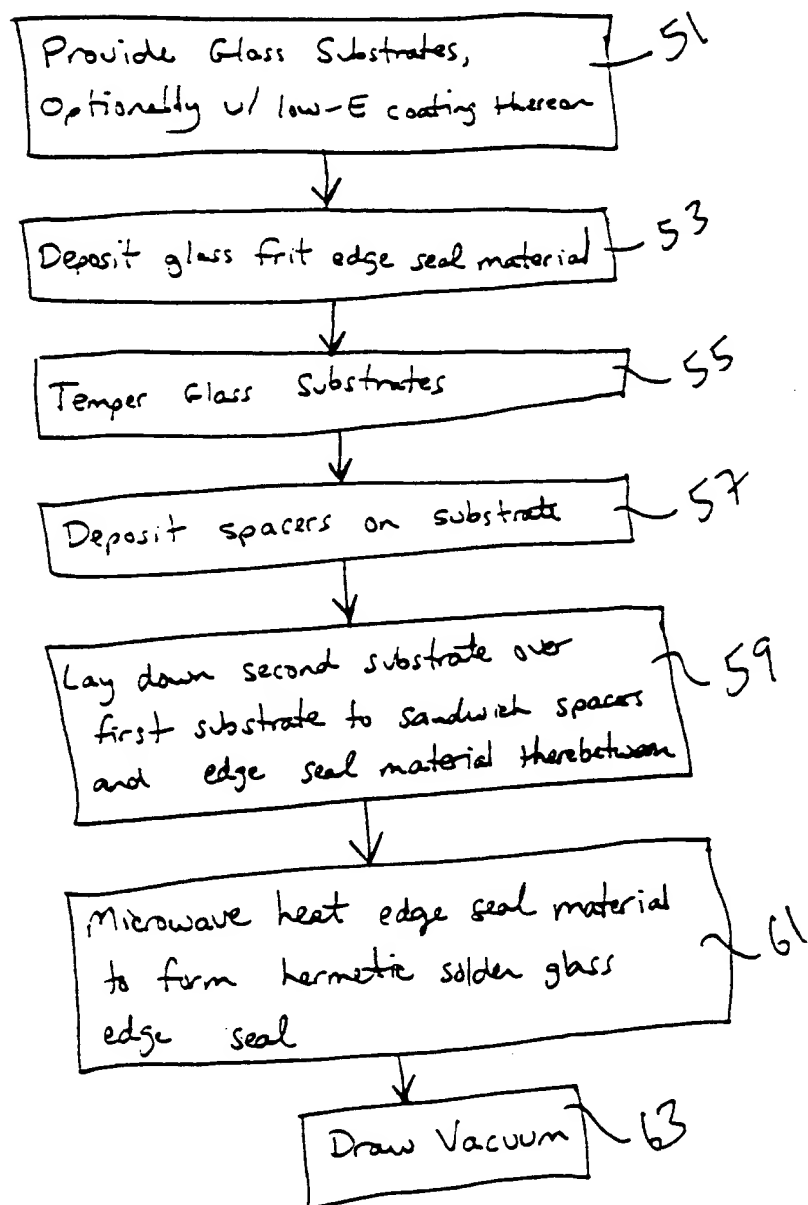 Provide Glass Substrates, 51
Optionally w/ low-E coating thereon
Deposit glass frit edge seal material 53
Temper Glass Substrates 55
Deposit spacers on substrate 57
Lay down second substrate over 59
first substrate to sandwich spacers
and edge seal material therebetween
Microwave heat edge seal material
to form hermetic solder glass 61
edge seal
Draw Vacuum 63